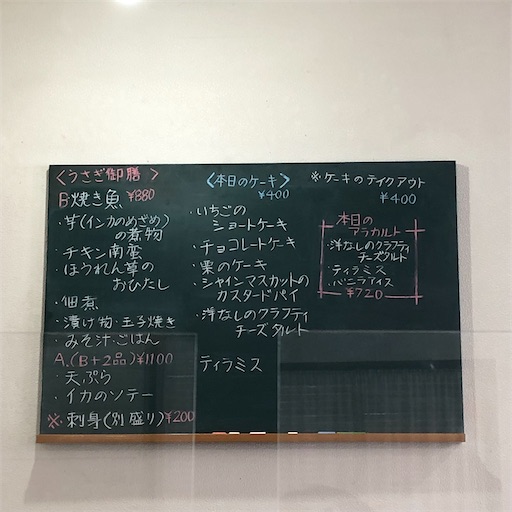 〈うさぎ御膳〉
B焼き魚 ¥880
・芋(インカのめざめ)
の煮物
・チキン南蛮
・ほうれん草の
おひたし
・佃煮
・漬け物・玉子焼き
・みそ汁・ごはん
A.(B+2品)¥1100
・天ぷら
・イカのソテー
※・刺身(別盛り)¥200
〈本日のケーキ〉
¥400
・いちごの
ショートケーキ
・チョコレートケーキ
・栗のケーキ
・シャインマスカットの
カスタードパイ
・洋なしのクラフティ
チーズタルト
ティラミス
※ケーキのテイクアウト
¥400
本日の
アラカルト
・洋なしのクラフティ
チーズタルト
・ティラミス
・バニラアイス
¥720